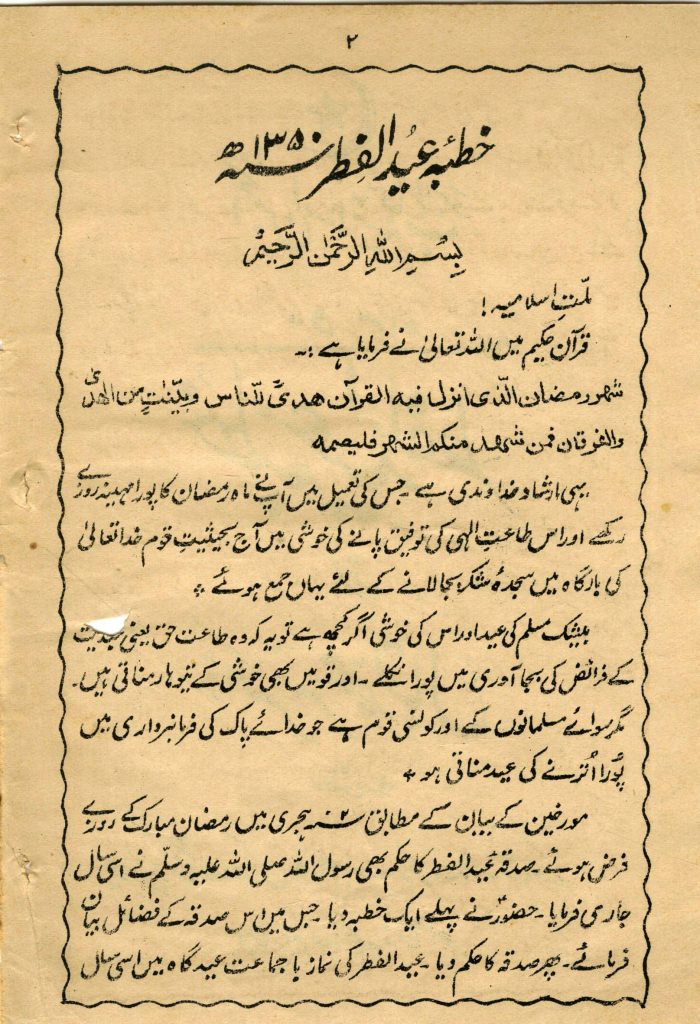 ۲
خطبۂ عید الفطر ۱۳۵۰ھ
بِسْمِ اللهِ الرَّحْمٰنِ الرَّحِيْمِ
ملّتِ اسلامیہ!
قرآن حکیم میں اللہ تعالیٰ نے فرمایا ہے :۔
شھر رمضان الّذی انزل فیه القرآن ھدیً للناس و بیّنٰتٍ من الھدیٰ
والفرقان فمن شھد منکم الشھر فلیصمه
یہی ارشادِ خداوندی ہے۔ جس کی تعمیل میں آپ نے ماہ رمضان کا پورا مہینہ روزے
رکھے اور اس طاعتِ الٰہی کی توفیق پانے کی خوشی میں آج بحیثیتِ قوم خدا تعالیٰ
کی بارگاہ میں سجدۂ شکر بجا لانے کے لئے یہاں جمع ہوئے *
بیشک مسلم کی عید اور اس کی خوشی اگر کچھ ہے تو یہ کہ وہ طاعت حق یعنی عبدیت
کے فرائض کی بجا آوری میں پورا نکلے۔ اور قومیں بھی خوشی کے تیوہار مناتی ہیں۔
مگر سوائے مسلمانوں کے اور کونسی قوم ہے جو خدائے پاک کی فرمانبرداری میں
پُورا اُترنے کی عید مناتی ہو *
مورخین کے بیان کے مطابق سنہ ۲ ہجری میں رمضان مبارک کے روزے
فرض ہوئے۔ صدقہ عید الفطر کا حکم بھی رسول اللہ صلی اللہ علیہ وسلّم نے اسی سال
جاری فرمایا۔ حضورؐ نے پہلے ایک خطبہ دیا۔ جس میں اس صدقہ کے فضائل بیان
فرمائے۔ پھر صدقہ کا حکم دیا۔ عید الفطر کی نماز با جماعت عید گاہ میں اسی سال